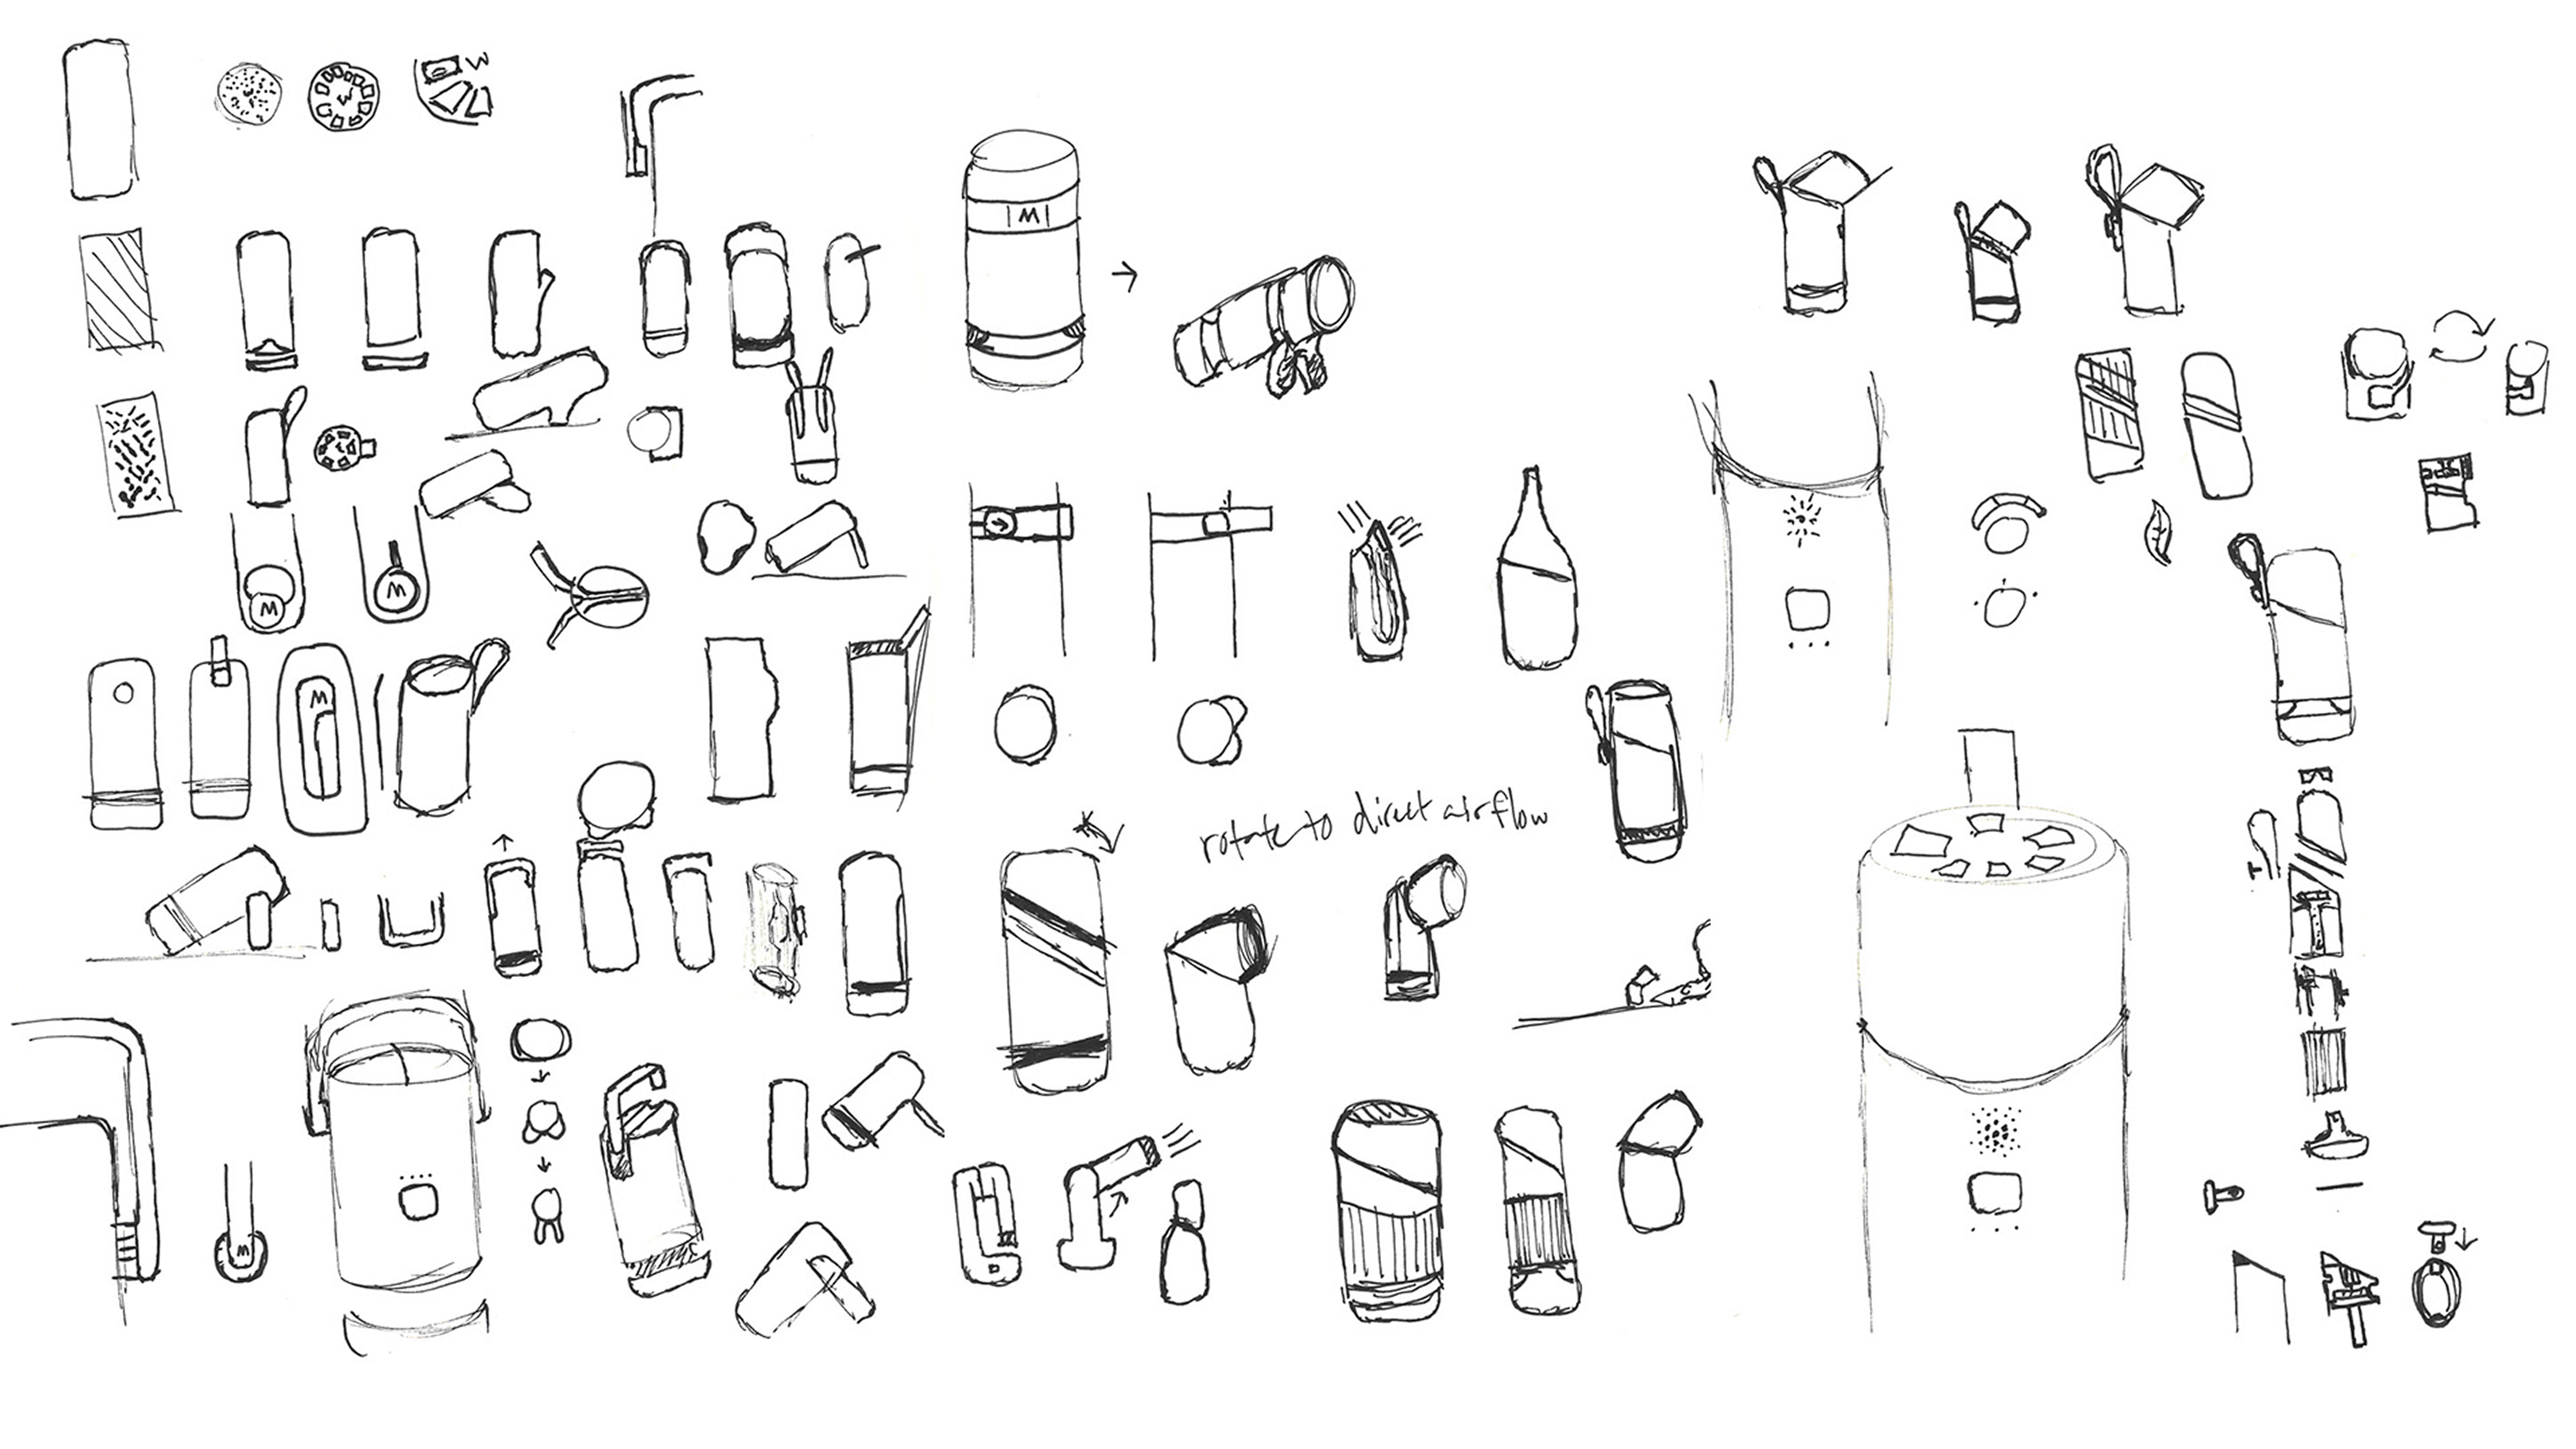 W
M
M
M
M
rotate to direct airflow
M